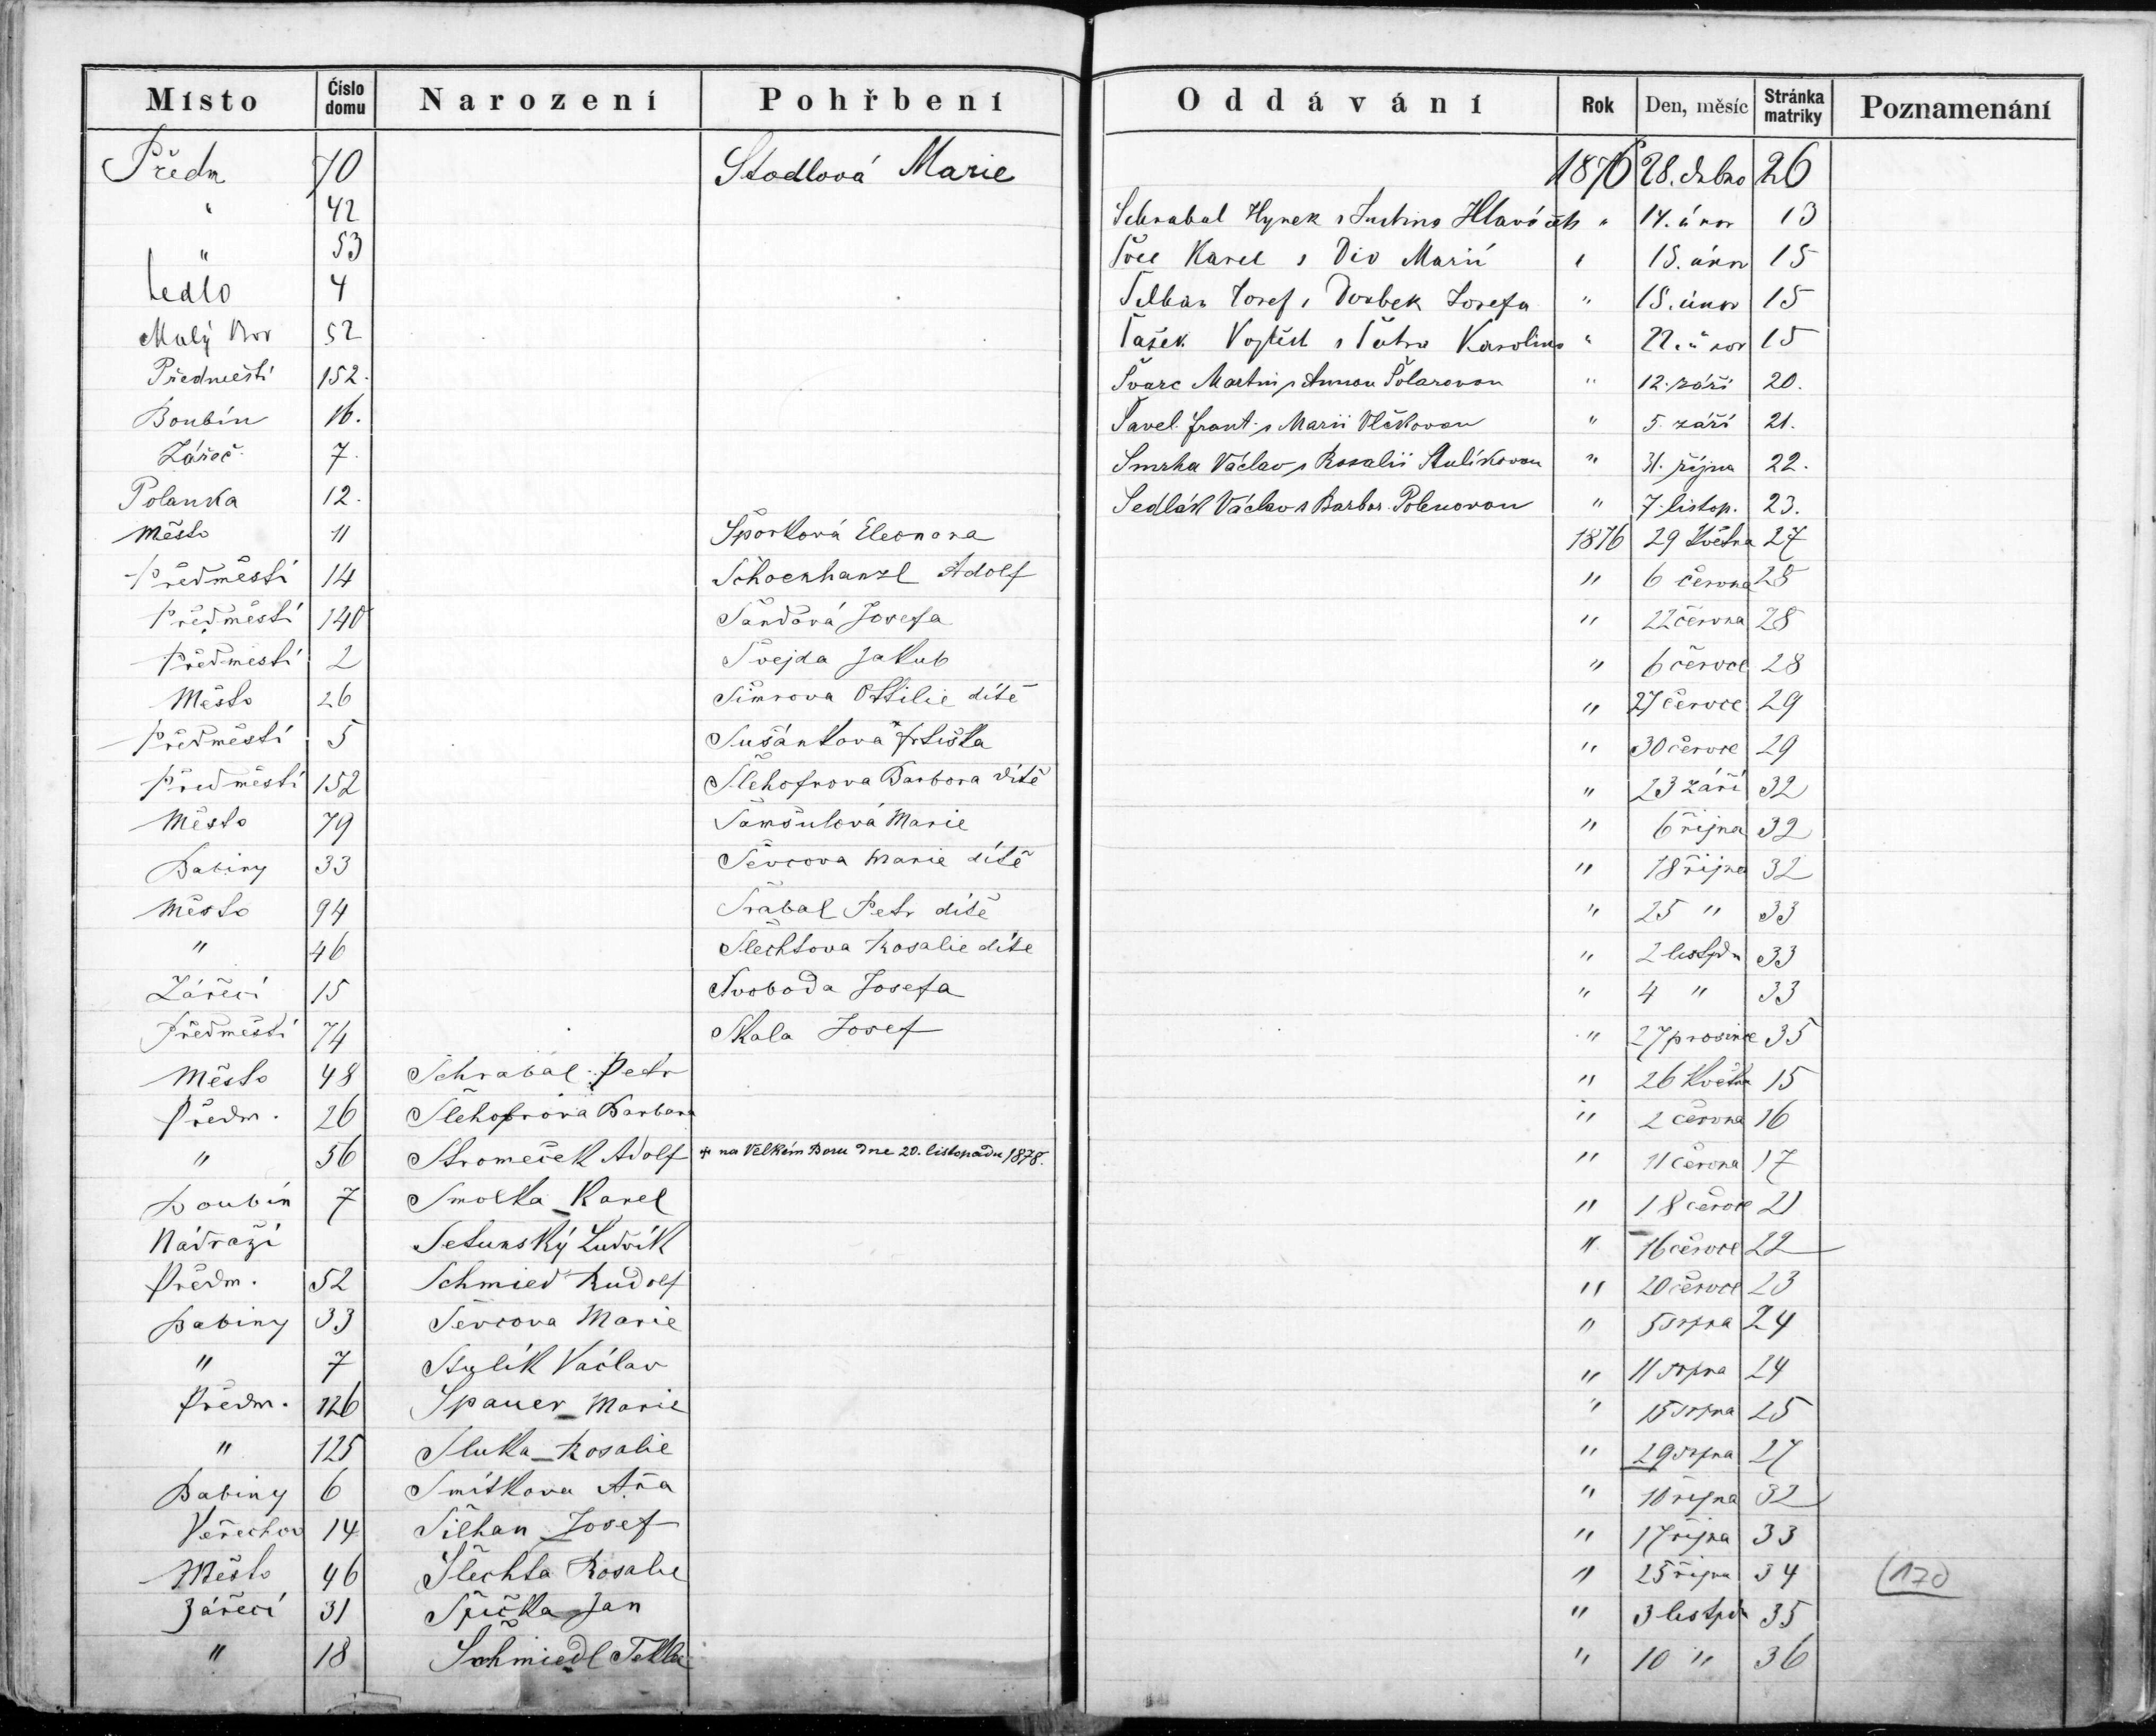 Místo Číslo domu Narození Pohřbení Oddávání Rok Den, měsíc Stránka matriky Poznamenání
Předm 70 Stodlová Marie 1876 28. dubna 26
" 42 Schrabal Hynek s Hlaváček " 14. únor 13
" 53 Švec Karel s Marií " 15. únor 15
Sedlo 4 Josef s Josefa " 15. únor 15
Malý Bor 52 Vojtěch s Karolina " 22. únor 15
Předměstí 152. Švarc Martin s Annou Šolarovou " 12. září 20.
Boubín 16. Pavel Frant. s Marií Vlčkovou " 5. září 21.
Zářeč. 7. Smrha Václav s Rosalií Stulíkovou " 31. října 22.
Polanka 12. Sedlák Václav s Barbor. Polenovou " 7. listop. 23.
Město 11 Šporková Eleonora 1876 29 Května 27
Předměstí 14 Schoenhanzl Adolf " 6 června 28
Předměstí 140 Šandová Josefa " 22 června 28
Předměstí 2 Švejda Jakub " 6 července 28
Město 26 Šimrova Ottilie dítě " 27 července 29
Předměstí 5 Sušánková Frtiška " 30 července 29
Předměstí 152 Šlehofrova Barbora dítě " 23 září 32
Město 79 Šamšulová Marie " 6 října 32
Babiny 33 Ševcova Marie dítě " 18 října 32
Město 94 Šrabal Petr dítě " 25 " 33
" 46 Šlechtova Rosalie díte " 2 listpdu 33
Zářečí 15 Svoboda Josefa " 4 " 33
Předměstí 74 Skala Josef " 27 prosince 35
Město 48 Schrabal Petr " 26 Května 15
Předm. 26 Šlehofrova Barbara " 2 června 16
" 56 Stromeček Adolf † na Velkém Boru dne 20. listopadu 1878. " 11 června 17
Boubín 7 Smolka Karel " 18 července 21
Nádraží Setunský Ludvík " 16 července 22
Předm. 52 Schmied Rudolf " 20 července 23
Babiny 33 Ševcova Marie " 5 srpna 24
" 7 Stulík Václav " 11 srpna 24
Předm. 126 Spauer Marie " 15 srpna 25
" 125 Sluka Rosalie " 29 srpna 27
Babiny 6 Smitkova Aña " 10 října 32
Veřechov 14 Šilhan Josef " 17 října 33
Město 46 Šlechta Rosalie " 25 října 34
Zářečí 31 Špička Jan " 3 listpdu 35
" 18 Schmiedl Tekla " 10 " 36
170